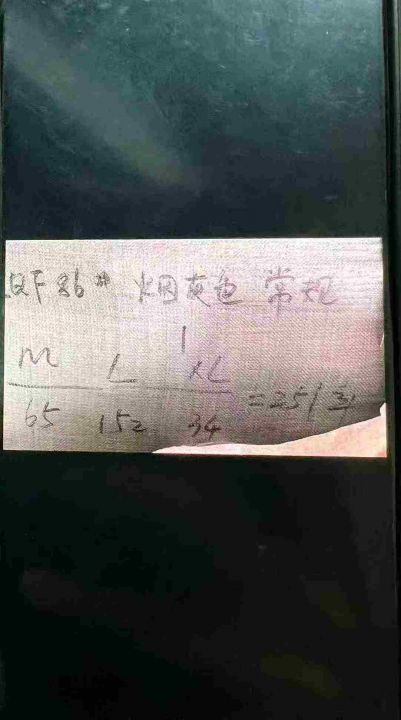 QF86# 烟囱灰色 常规
1
M L XL
65 152 34 =251套